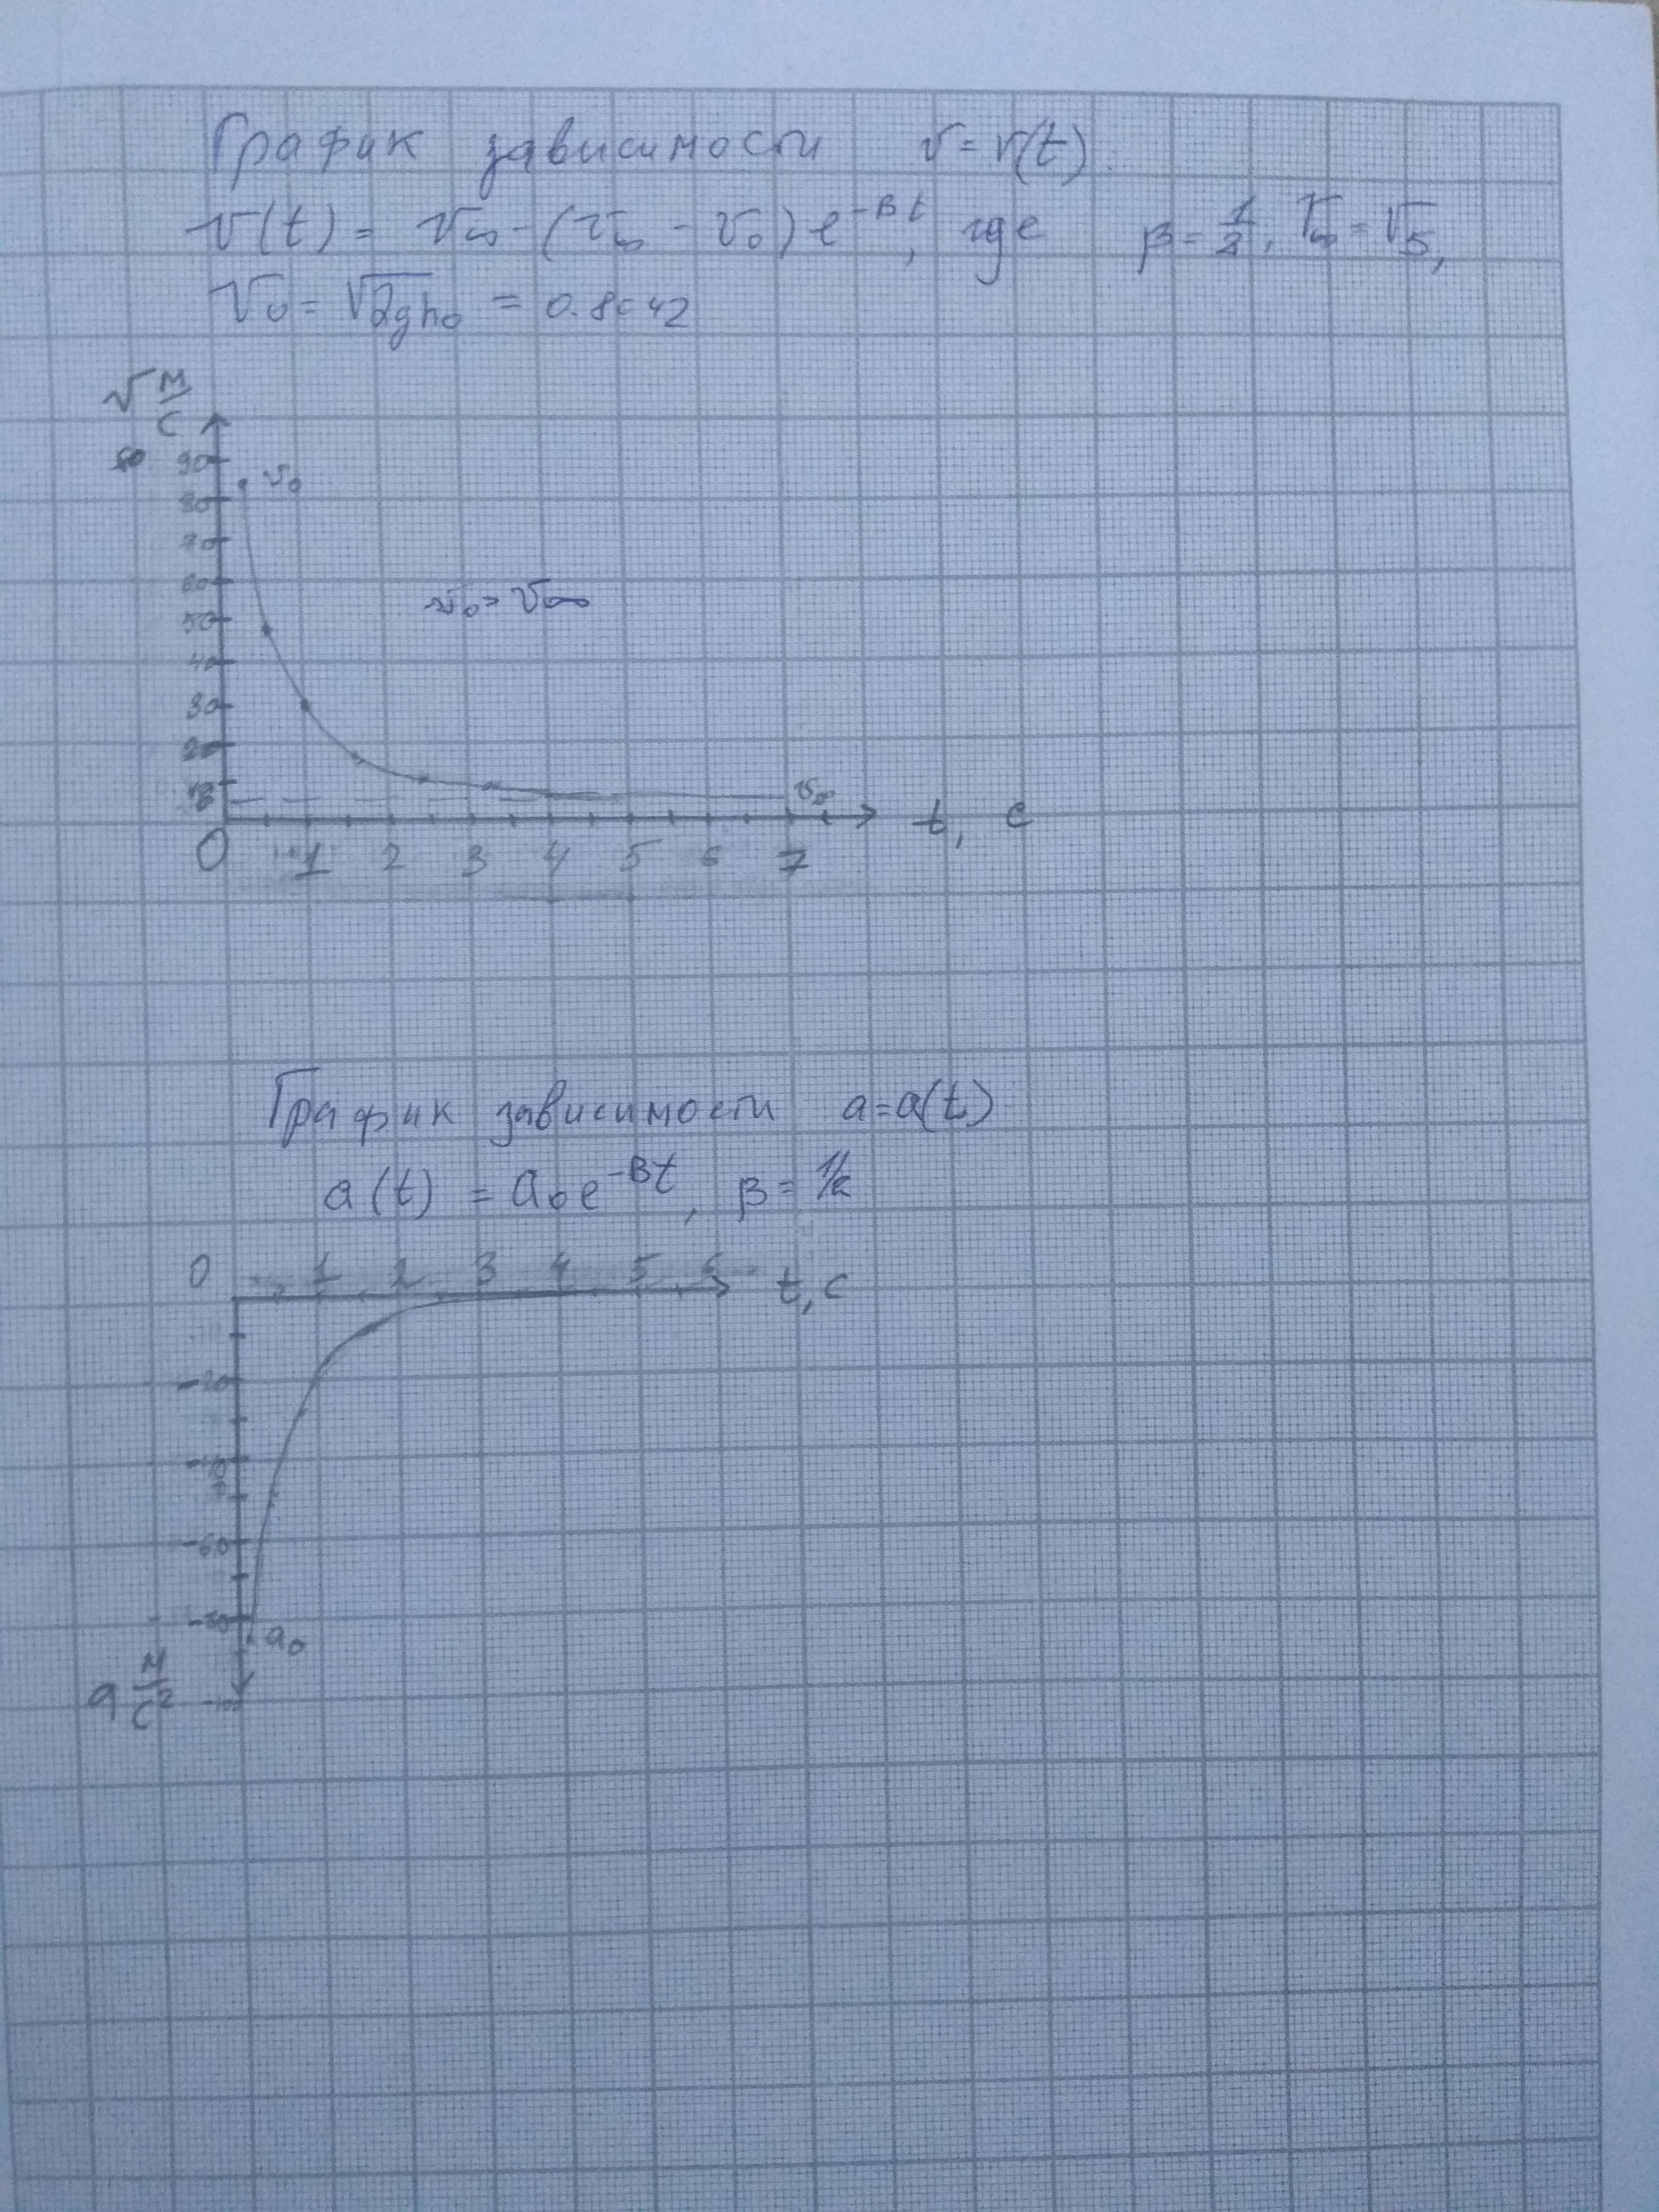 График зависимости v = v(t).
v(t) = v∞ - (v∞ - v₀) e^-βt, где β = 1/2, v∞ = v5,
v₀ = √2gh₀ = 0.8042
v м/с
90 v₀
80
70
60 v₀ > v∞
50
40
30
20
v∞
0 1 2 3 4 5 6 7 t, c
График зависимости a = a(t)
a(t) = a₀e^-βt, β = 1/2
0 1 2 3 4 5 6 t, c
-20
-40
-60
-80
a₀
a м/с²